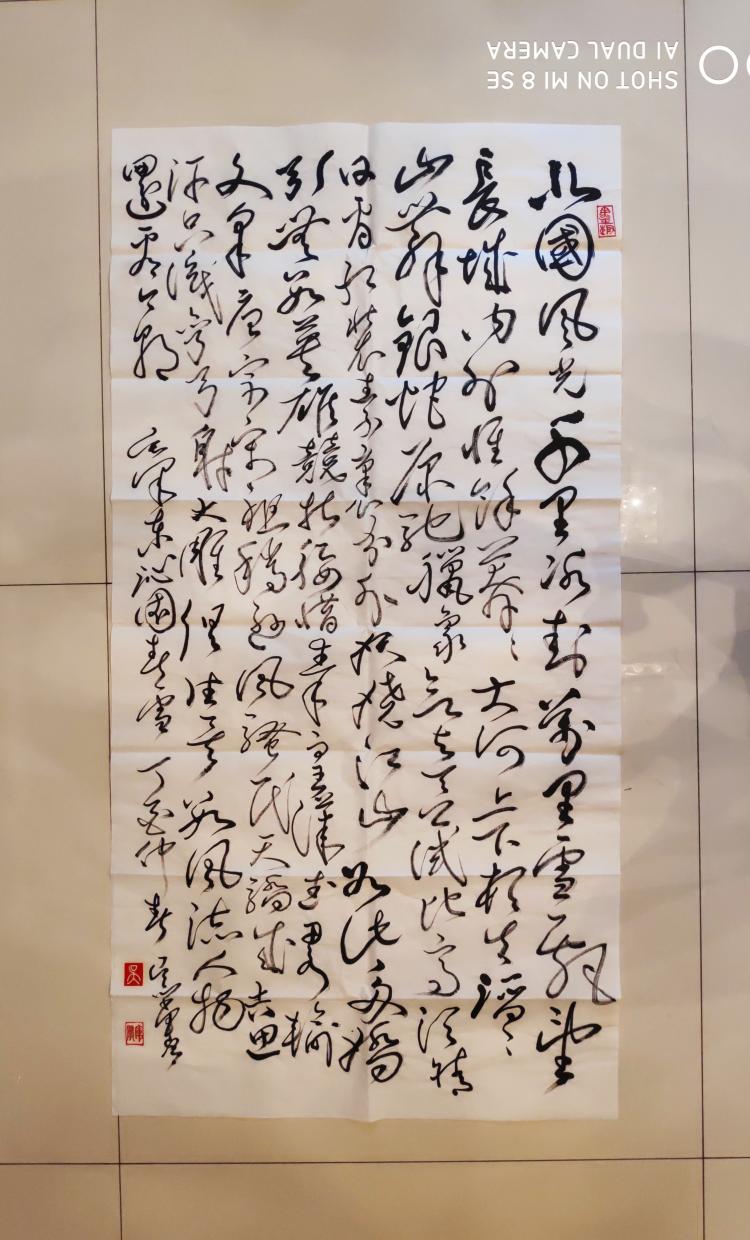 北國風光千里冰封萬里雪飄望
長城內外惟餘莽〻大河上下頓失滔〻
山舞銀蛇原馳臘象欲與天公試比高須晴
日看紅裝素裹分外妖嬈江山如此多嬌
引無數英雄競折腰惜秦皇漢武略輸
文采唐宗宋祖稍遜風騷一代天驕成吉思
汗只識彎弓射大雕俱往矣數風流人物
還看今朝 毛澤東沁園春雪 丁酉仲春 書
吳
SHOT ON MI 8 SE
AI DUAL CAMERA